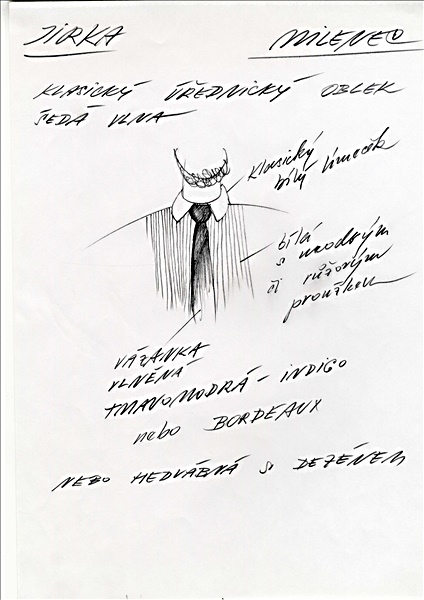 JIRKA
MILENEC
KLASICKÝ ÚŘEDNICKÝ OBLEK
ŠEDÁ VLNA
klasický
bílý límeček
bílá
s modrým
či růžovým
proužkem
VÁZANKA
VLNĚNÁ
TMAVOMODRÁ - INDIGO
nebo BORDEAUX
NEBO HEDVÁBNÁ S DEZÉNEM